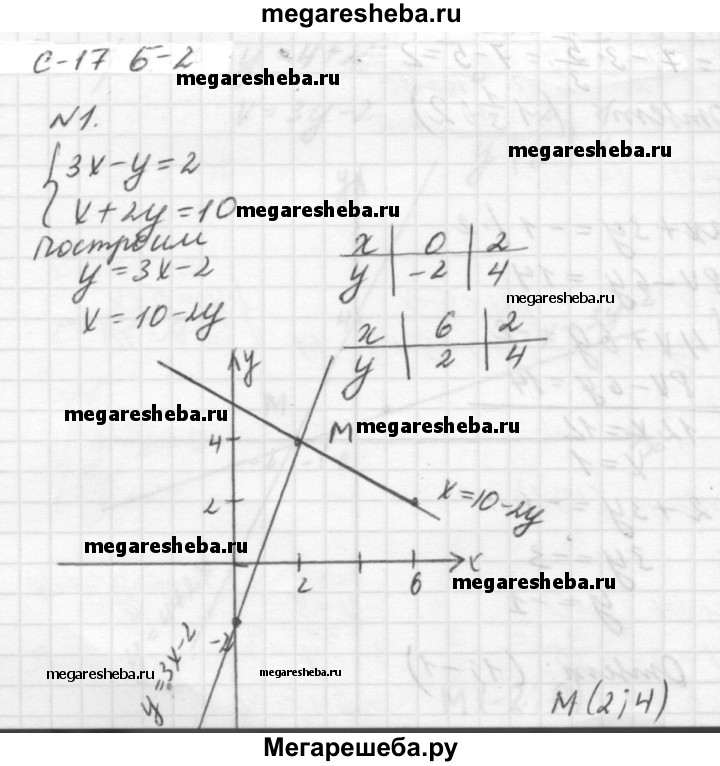 megaresheba.ru
С-17 Б-2
megaresheba.ru
№1.
megaresheba.ru
{ 3x-y=2
x+2y=10
megaresheba.ru
построим
y=3x-2
x=10-2y
x | 0 | 2
y | -2 | 4
megaresheba.ru
x | 6 | 2
y | 2 | 4
y
megaresheba.ru
M
megaresheba.ru
4
2
x=10-2y
megaresheba.ru
x
2
6
megaresheba.ru
-2
y=3x-2
megaresheba.ru
megaresheba.ru
M(2;4)
Мегарешеба.ру